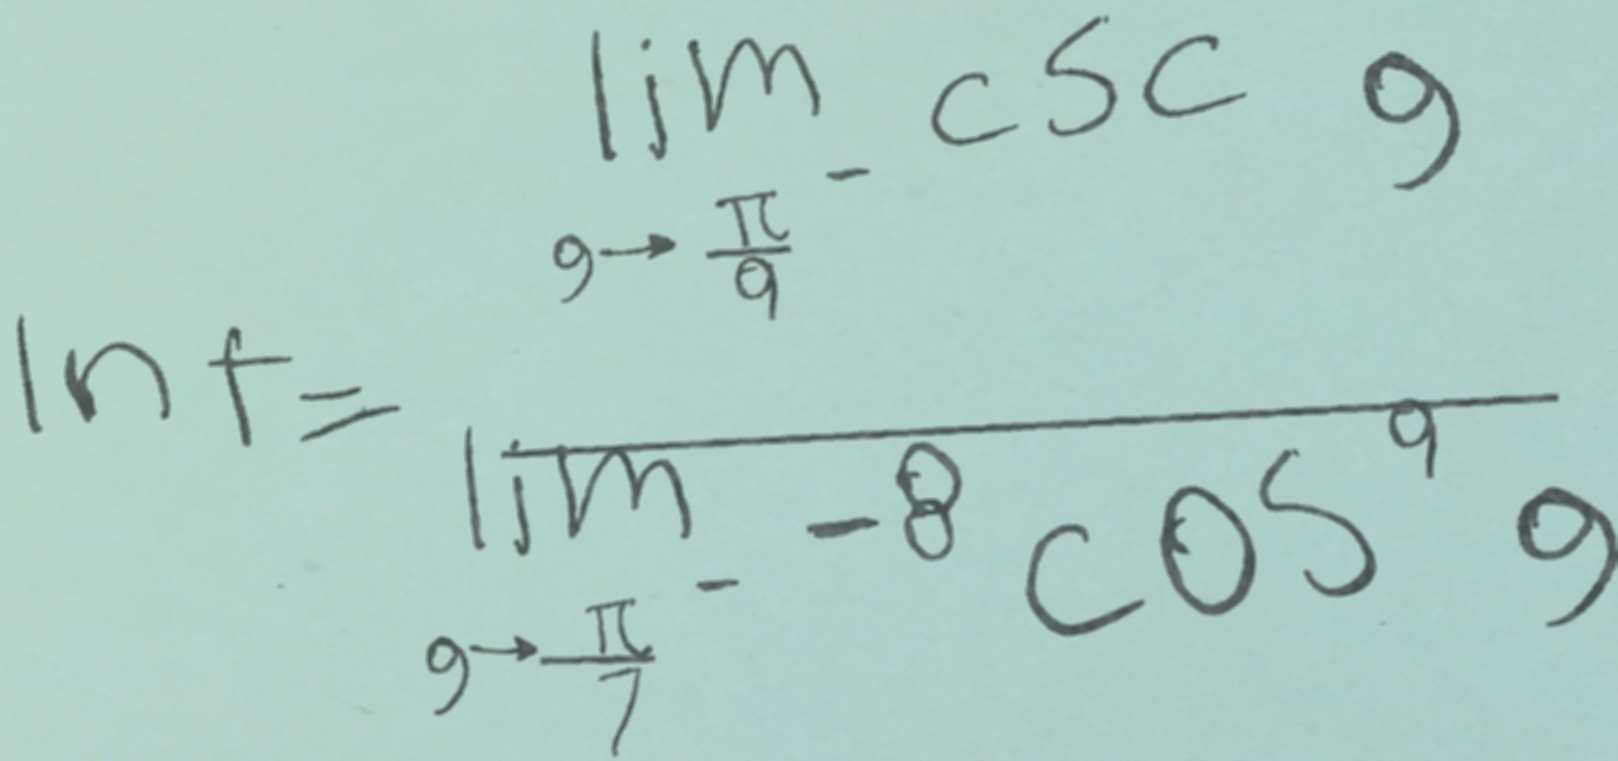 ln t = \frac{\lim_{g \to \frac{\pi}{9}^-} csc g}{\lim_{g \to \frac{\pi}{7}^-} -8 cos^9 g}